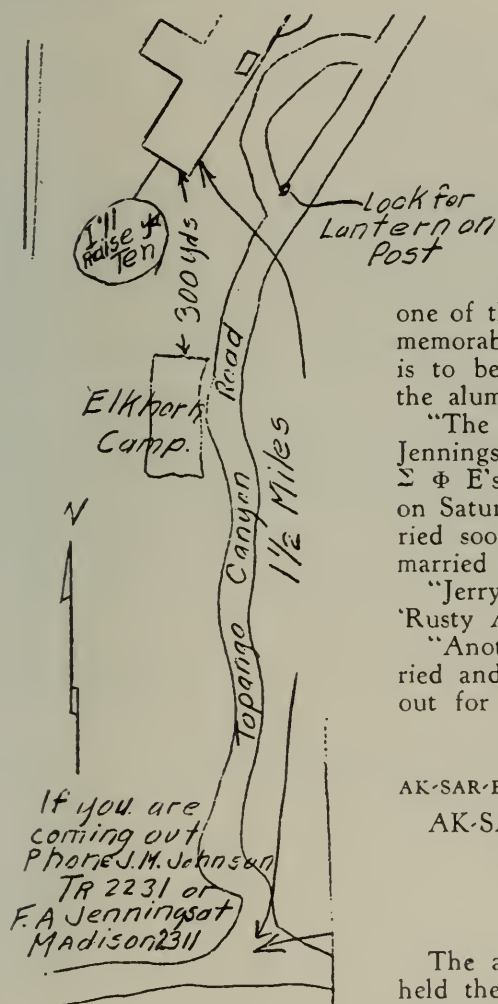 I'll
Raise ya
Ten
300 yds
Look for
Lantern on
Post
Elkhorn
Camp.
Topango Canyon Road
1½ Miles
N
If you are
coming out
Phone J.M. Johnson
TR 2231 or
F.A Jennings at
MAdison 2311
one of th
memorab
is to be
the alum
"The
Jennings
Σ Φ E's
on Satur
ried soo
married
"Jerry
'Rusty A
"Anot
ried and
out for
AK-SAR-B
AK-SA
The a
held the